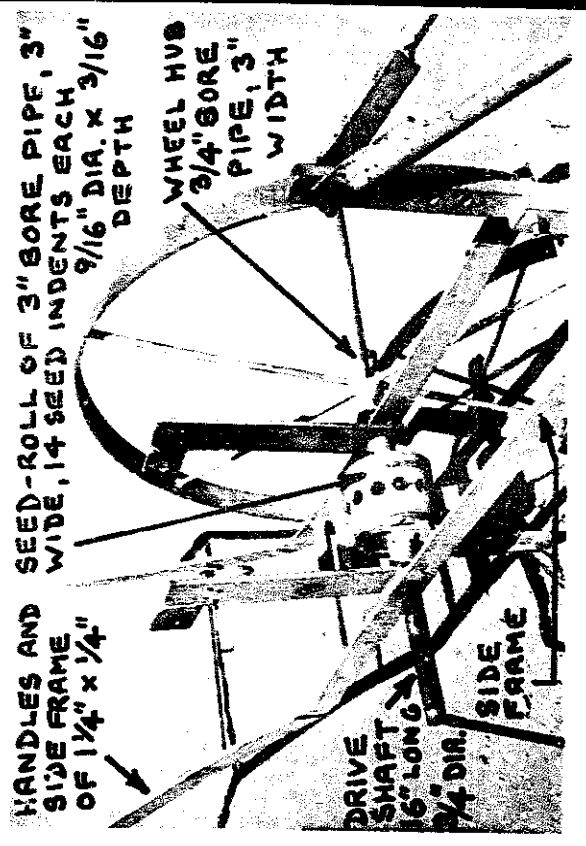 HANDLES AND
SIDE FRAME
OF 1¼" x ¼"
SEED-ROLL OF 3" BORE PIPE, 3"
WIDE, 14 SEED INDENTS EACH
9/16" DIA. x 3/16"
DEPTH
WHEEL HUB
3/4" BORE
PIPE, 3"
WIDTH
DRIVE
SHAFT
16" LONG
3/4" DIA.
SIDE
FRAME